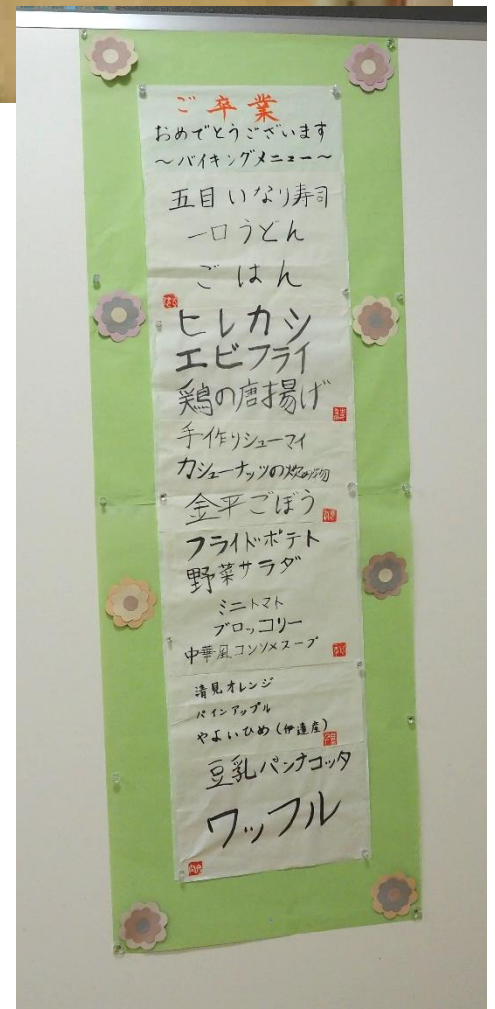 ご卒業
おめでとうございます
～バイキングメニュー～
五目いなり寿司
一口うどん
ごはん
ヒレカツ
エビフライ
鶏の唐揚げ
手作りシューマイ
カシューナッツの炊め物
金平ごぼう
フライドポテト
野菜サラダ
ミニトマト
ブロッコリー
中華風コンソメスープ
清見オレンジ
パインアップル
やよいひめ(伊達産)
豆乳パンナコッタ
ワッフル